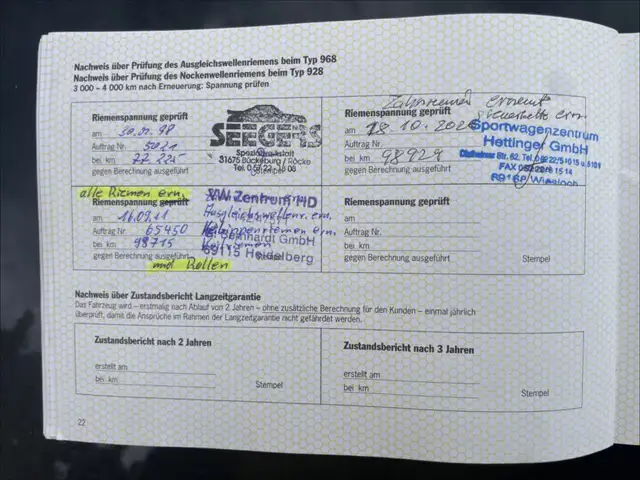 Nachweis über Prüfung des Ausgleichswellenriemens beim Typ 968
Nachweis über Prüfung des Nockenwellenriemens beim Typ 928
3 000 – 4 000 km nach Erneuerung: Spannung prüfen
Riemenspannung geprüft
am
Auftrag Nr. 5021
bei km 77 225
gegen Berechnung ausgeführt
SEEGERS
31675 Bückeburg / Röcke
Zahnriemen erneut
Riemenspannung geprüft
am 28.10.2020
Auftrag Nr.
bei km 98924
gegen Berechnung ausgeführt
Sportwagenzentrum
Hettinger GmbH
69168 Wiesloch
alle Riemen ern.
Riemenspannung geprüft
am 16.09.11
Auftrag Nr. 65450
bei km 98715
gegen Berechnung ausgeführt
und Rollen
VW Zentrum HD
Ausgleichswellenr. ern.
Keilrippenriemen ern.
Keilriemen
GmbH
69115 Heidelberg
Riemenspannung geprüft
am
Auftrag Nr.
bei km
gegen Berechnung ausgeführt
Stempel
Nachweis über Zustandsbericht Langzeitgarantie
Das Fahrzeug wird – erstmalig nach Ablauf von 2 Jahren – ohne zusätzliche Berechnung für den Kunden – einmal jährlich
überprüft, damit die Ansprüche im Rahmen der Langzeitgarantie nicht gefährdet werden.
Zustandsbericht nach 2 Jahren
erstellt am
bei km
Stempel
Zustandsbericht nach 3 Jahren
erstellt am
bei km
Stempel
22